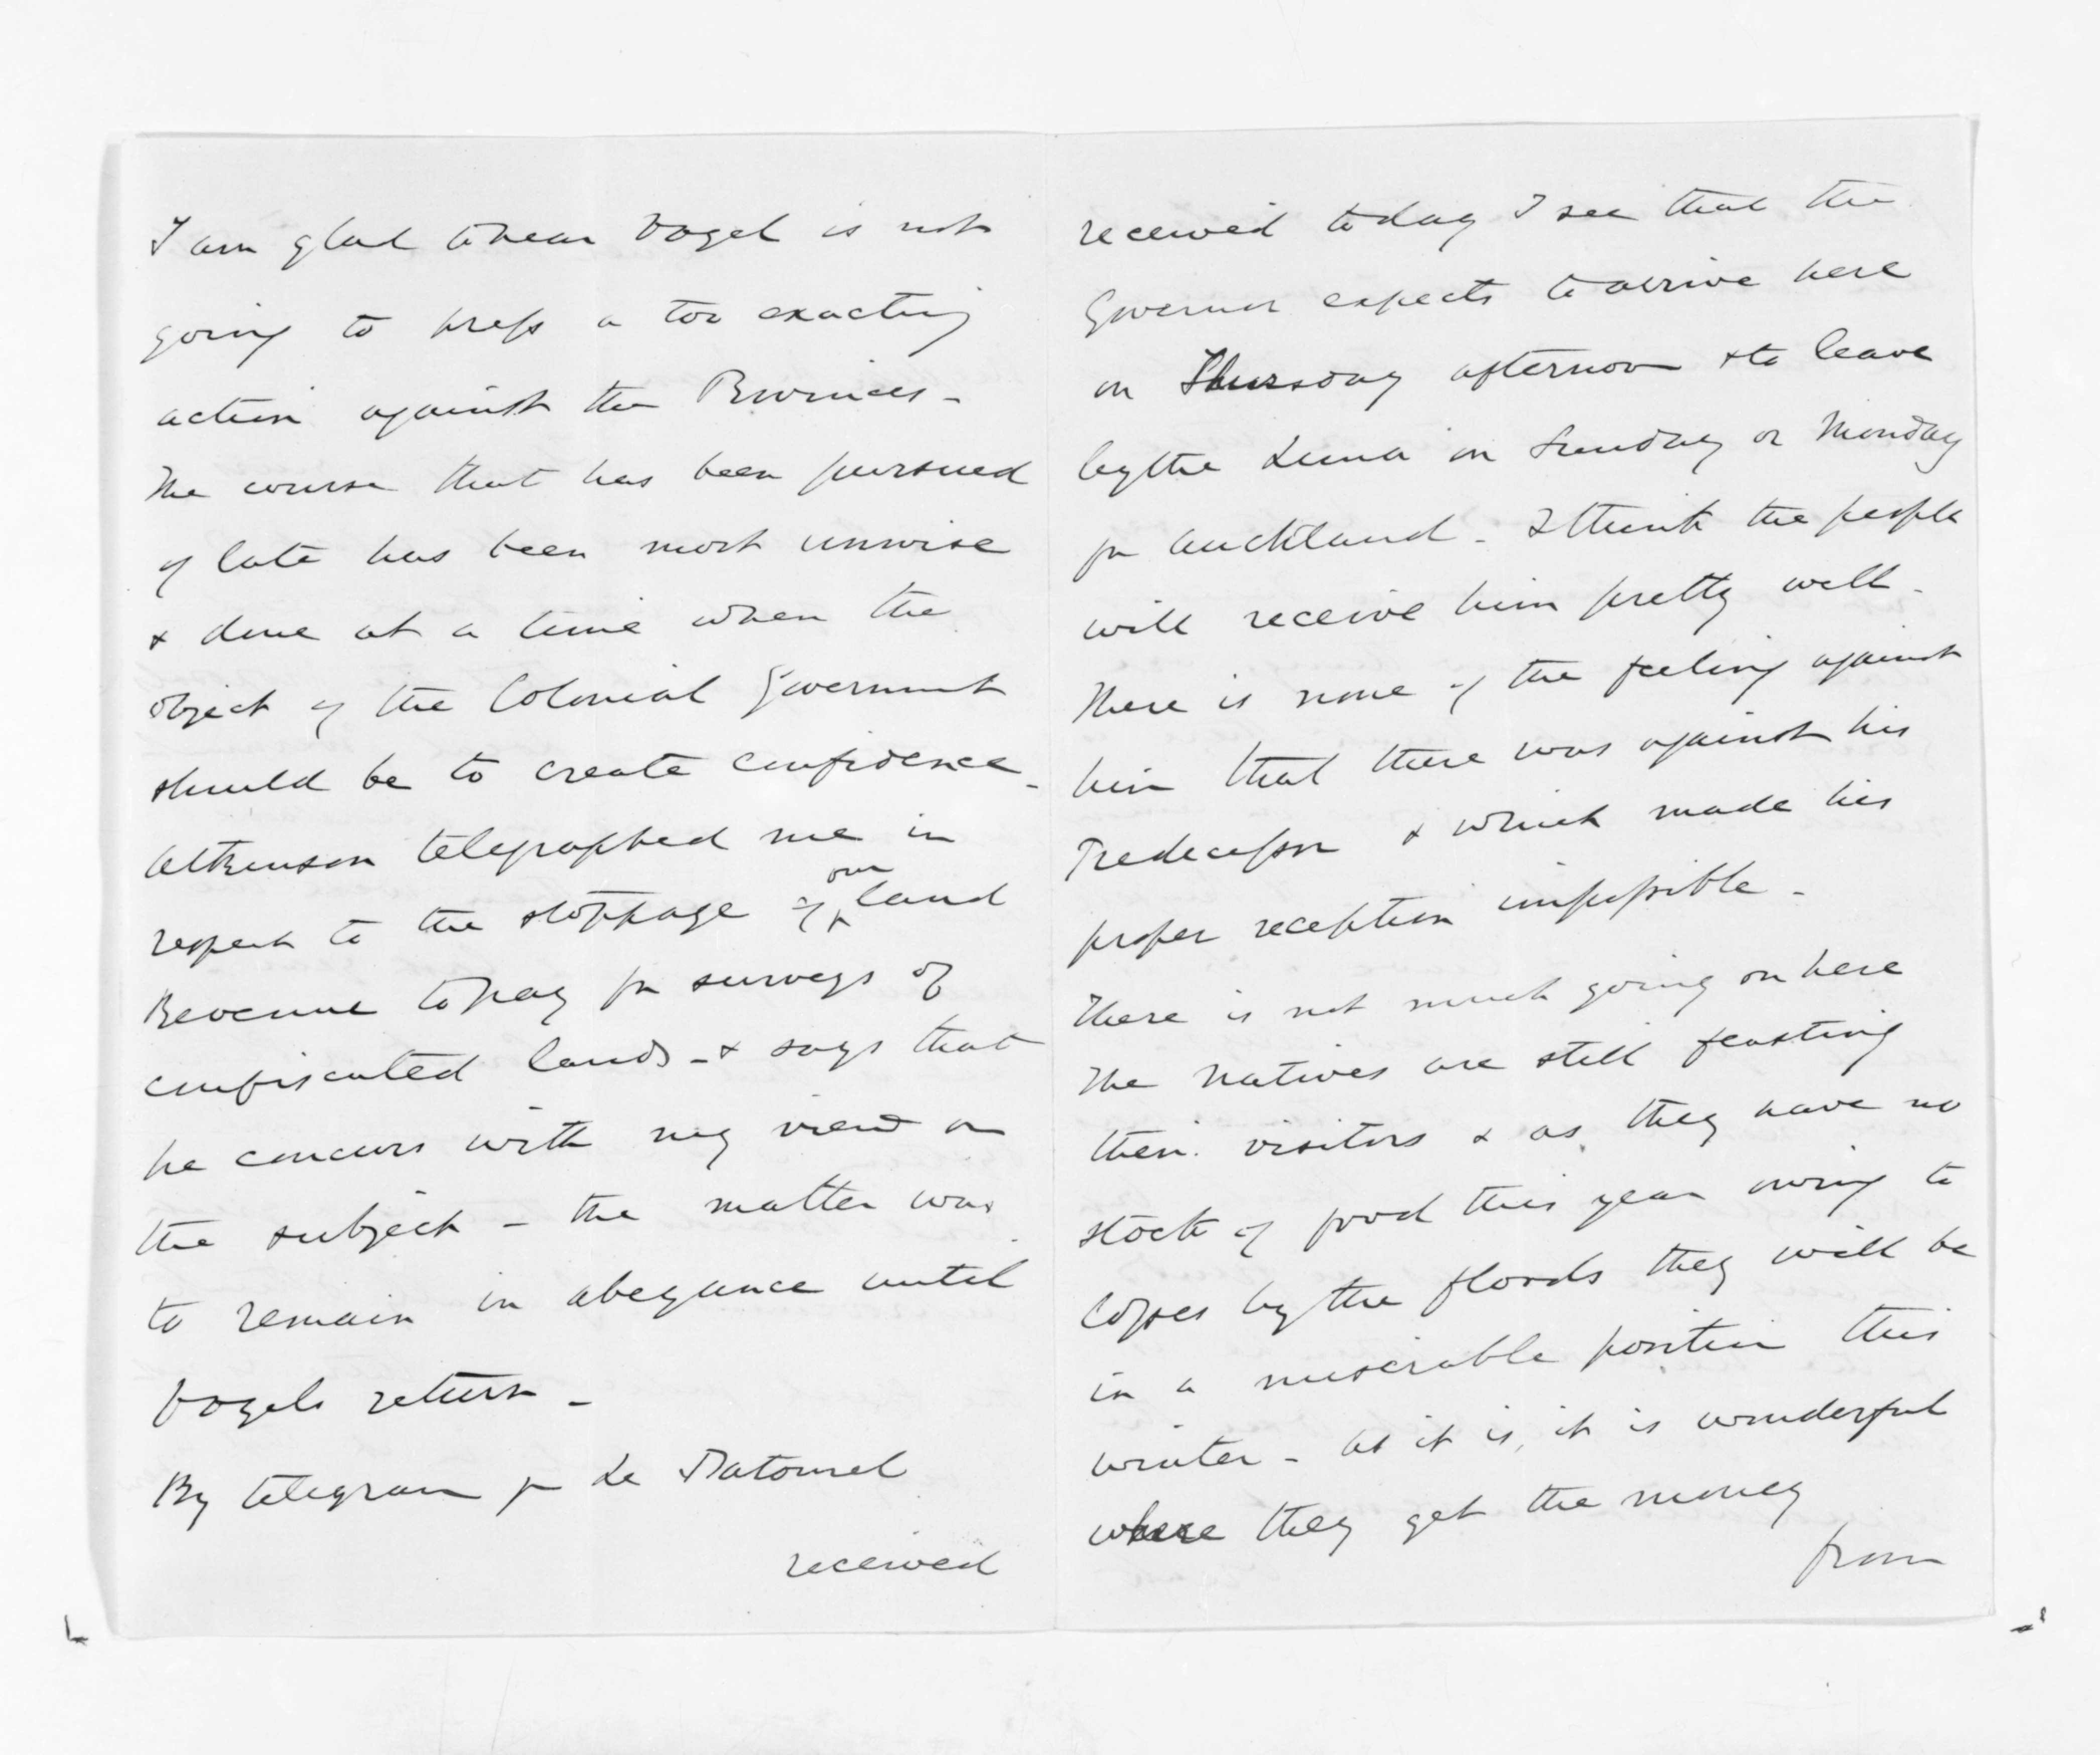 I am glad to hear Vogel is not
going to press a too exacting
action against the Provinces -
The course that has been pursued
of late has been most unwise
& done at a time when the
object of the Colonial Government
should be to create confidence -
Atkinson telegraphed me in
respect to the stoppage of our land
Revenue to pay for surveys of
confiscated lands - & says that
he concurs with my view on
the subject - the matter was
to remain in abeyance until
Vogels return -
By telegram fm Le Patourel
received
received today I see that the
Governor expects to arrive here
on Thursday afternoon & to leave
by the Luna on Sunday or Monday
for Auckland - I think the people
will receive him pretty well -
There is none of the feeling against
him that there was against his
Predecessor & which made his
proper reception impossible -
There is not much going on here
The Natives are still feasting
their visitors & as they have no
stock of food this year owing to
losses by the floods they will be
in a miserable position this
winter - As it is, it is wonderful
where they get the money
from